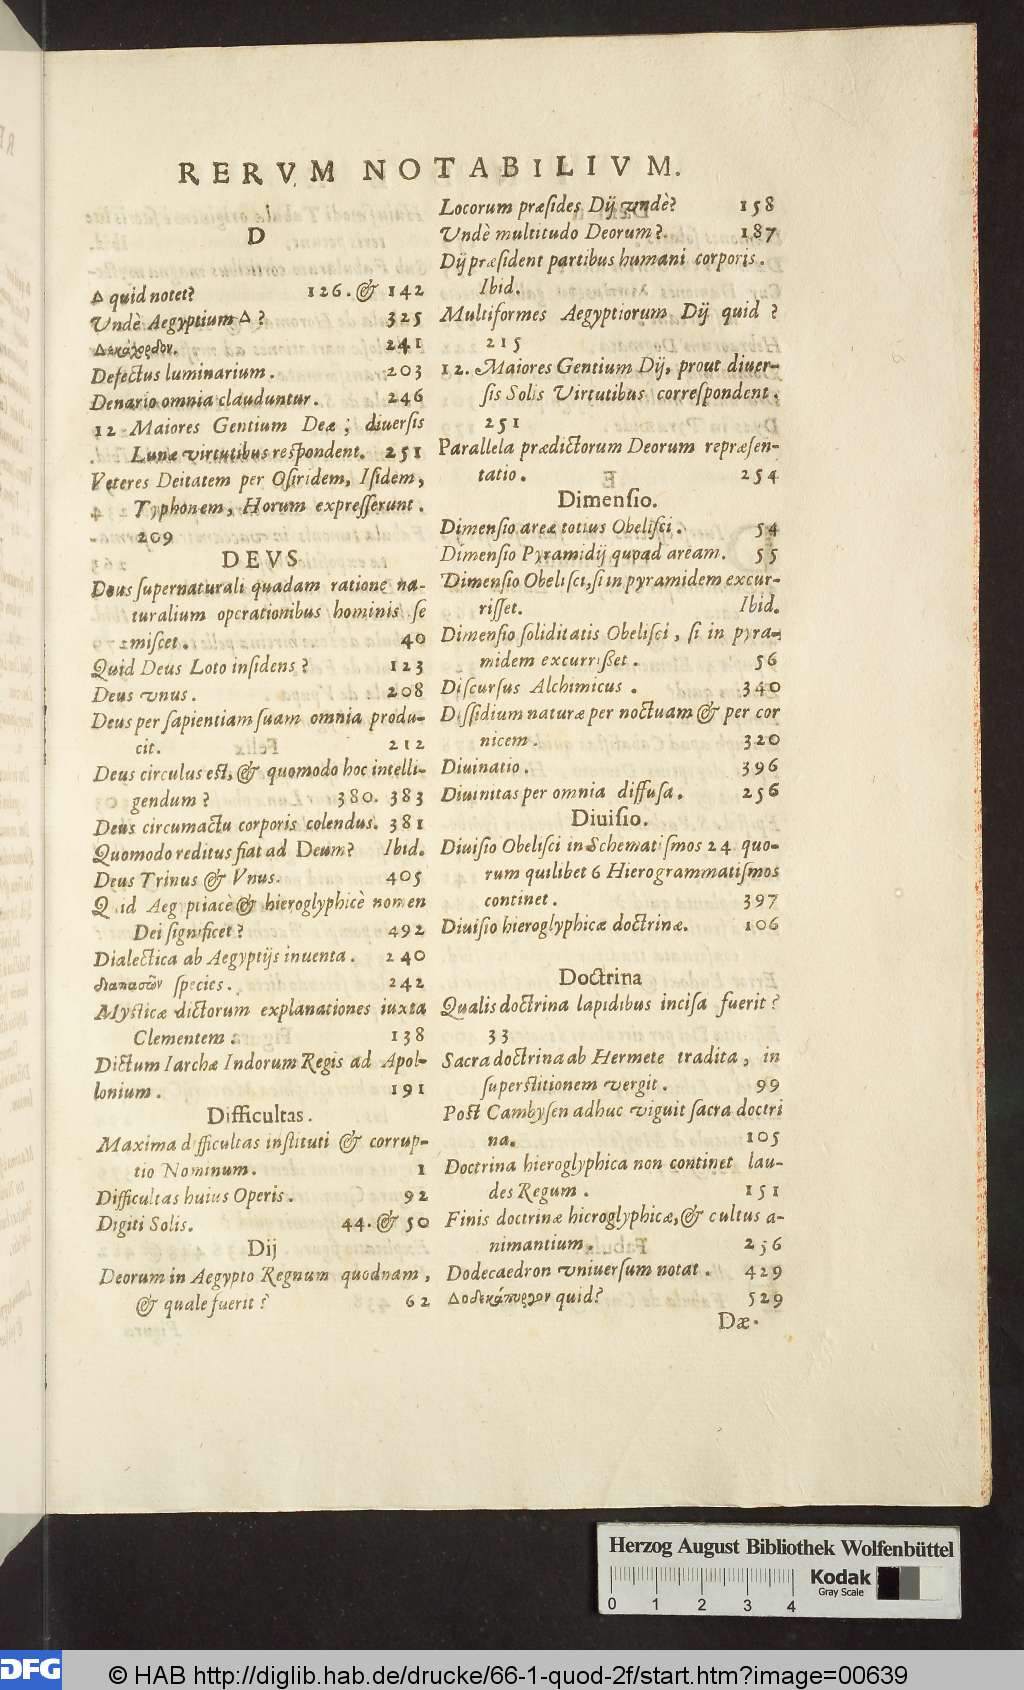 RERVM NOTABILIVM.
D
Δ quid notet? 126. & 142
Vndè Aegyptium Δ? 325
Δεκάχορδον. 241
Defectus luminarium. 203
Denario omnia clauduntur. 246
12 Maiores Gentium Deæ; diuersis
Lunæ virtutibus respondent. 251
Veteres Deitatem per Osiridem, Isidem,
Typhonem, Horum expresserunt.
209
DEVS
Deus supernaturali quadam ratione na-
turalium operationibus hominis se
miscet. 40
Quid Deus Loto insidens? 123
Deus vnus. 208
Deus per sapientiam suam omnia produ-
cit. 212
Deus circulus est, & quomodo hoc intelli-
gendum? 380. 383
Deus circumactu corporis colendus. 381
Quomodo reditus fiat ad Deum? Ibid.
Deus Trinus & Vnus. 405
Quid Aegyptiacè & hieroglyphicè nomen
Dei significet? 492
Dialectica ab Aegyptijs inuenta. 240
διαπασῶν species. 242
Mysticæ dictorum explanationes iuxta
Clementem. 138
Dictum Iarchæ Indorum Regis ad Apol-
lonium. 191
Difficultas.
Maxima difficultas instituti & corrup-
tio Nominum. 1
Difficultas huius Operis. 92
Digiti Solis. 44. & 50
Dij
Deorum in Aegypto Regnum quodnam,
& quale fuerit? 62
Locorum præsides Dij vndè? 158
Vndè multitudo Deorum? 187
Dij præsident partibus humani corporis.
Ibid.
Multiformes Aegyptiorum Dij quid?
215
12. Maiores Gentium Dij, prout diuer-
sis Solis Virtutibus correspondent.
251
Parallela prædictorum Deorum repræsen-
tatio. 254
Dimensio.
Dimensio areæ totius Obelisci. 54
Dimensio Pyramidij quoad aream. 55
Dimensio Obelisci, si in pyramidem excur-
risset. Ibid.
Dimensio soliditatis Obelisci, si in pyra-
midem excurrisset. 56
Discursus Alchimicus. 340
Dissidium naturæ per noctuam & per cor
nicem. 320
Diuinatio. 396
Diuinitas per omnia diffusa. 256
Diuisio.
Diuisio Obelisci in Schematismos 24 quo-
rum quilibet 6 Hierogrammatismos
continet. 397
Diuisio hieroglyphicæ doctrinæ. 106
Doctrina
Qualis doctrina lapidibus incisa fuerit?
33
Sacra doctrina ab Hermete tradita, in
superstitionem vergit. 99
Post Cambysen adhuc viguit sacra doctri
na. 105
Doctrina hieroglyphica non continet lau-
des Regum. 151
Finis doctrinæ hieroglyphicæ, & cultus a-
nimantium. 256
Dodecaedron vniuersum notat. 429
Δοδεκάπυργον quid? 529
Dæ-
Herzog August Bibliothek Wolfenbüttel
Kodak
Gray Scale
0 1 2 3 4
DFG © HAB http://diglib.hab.de/drucke/66-1-quod-2f/start.htm?image=00639